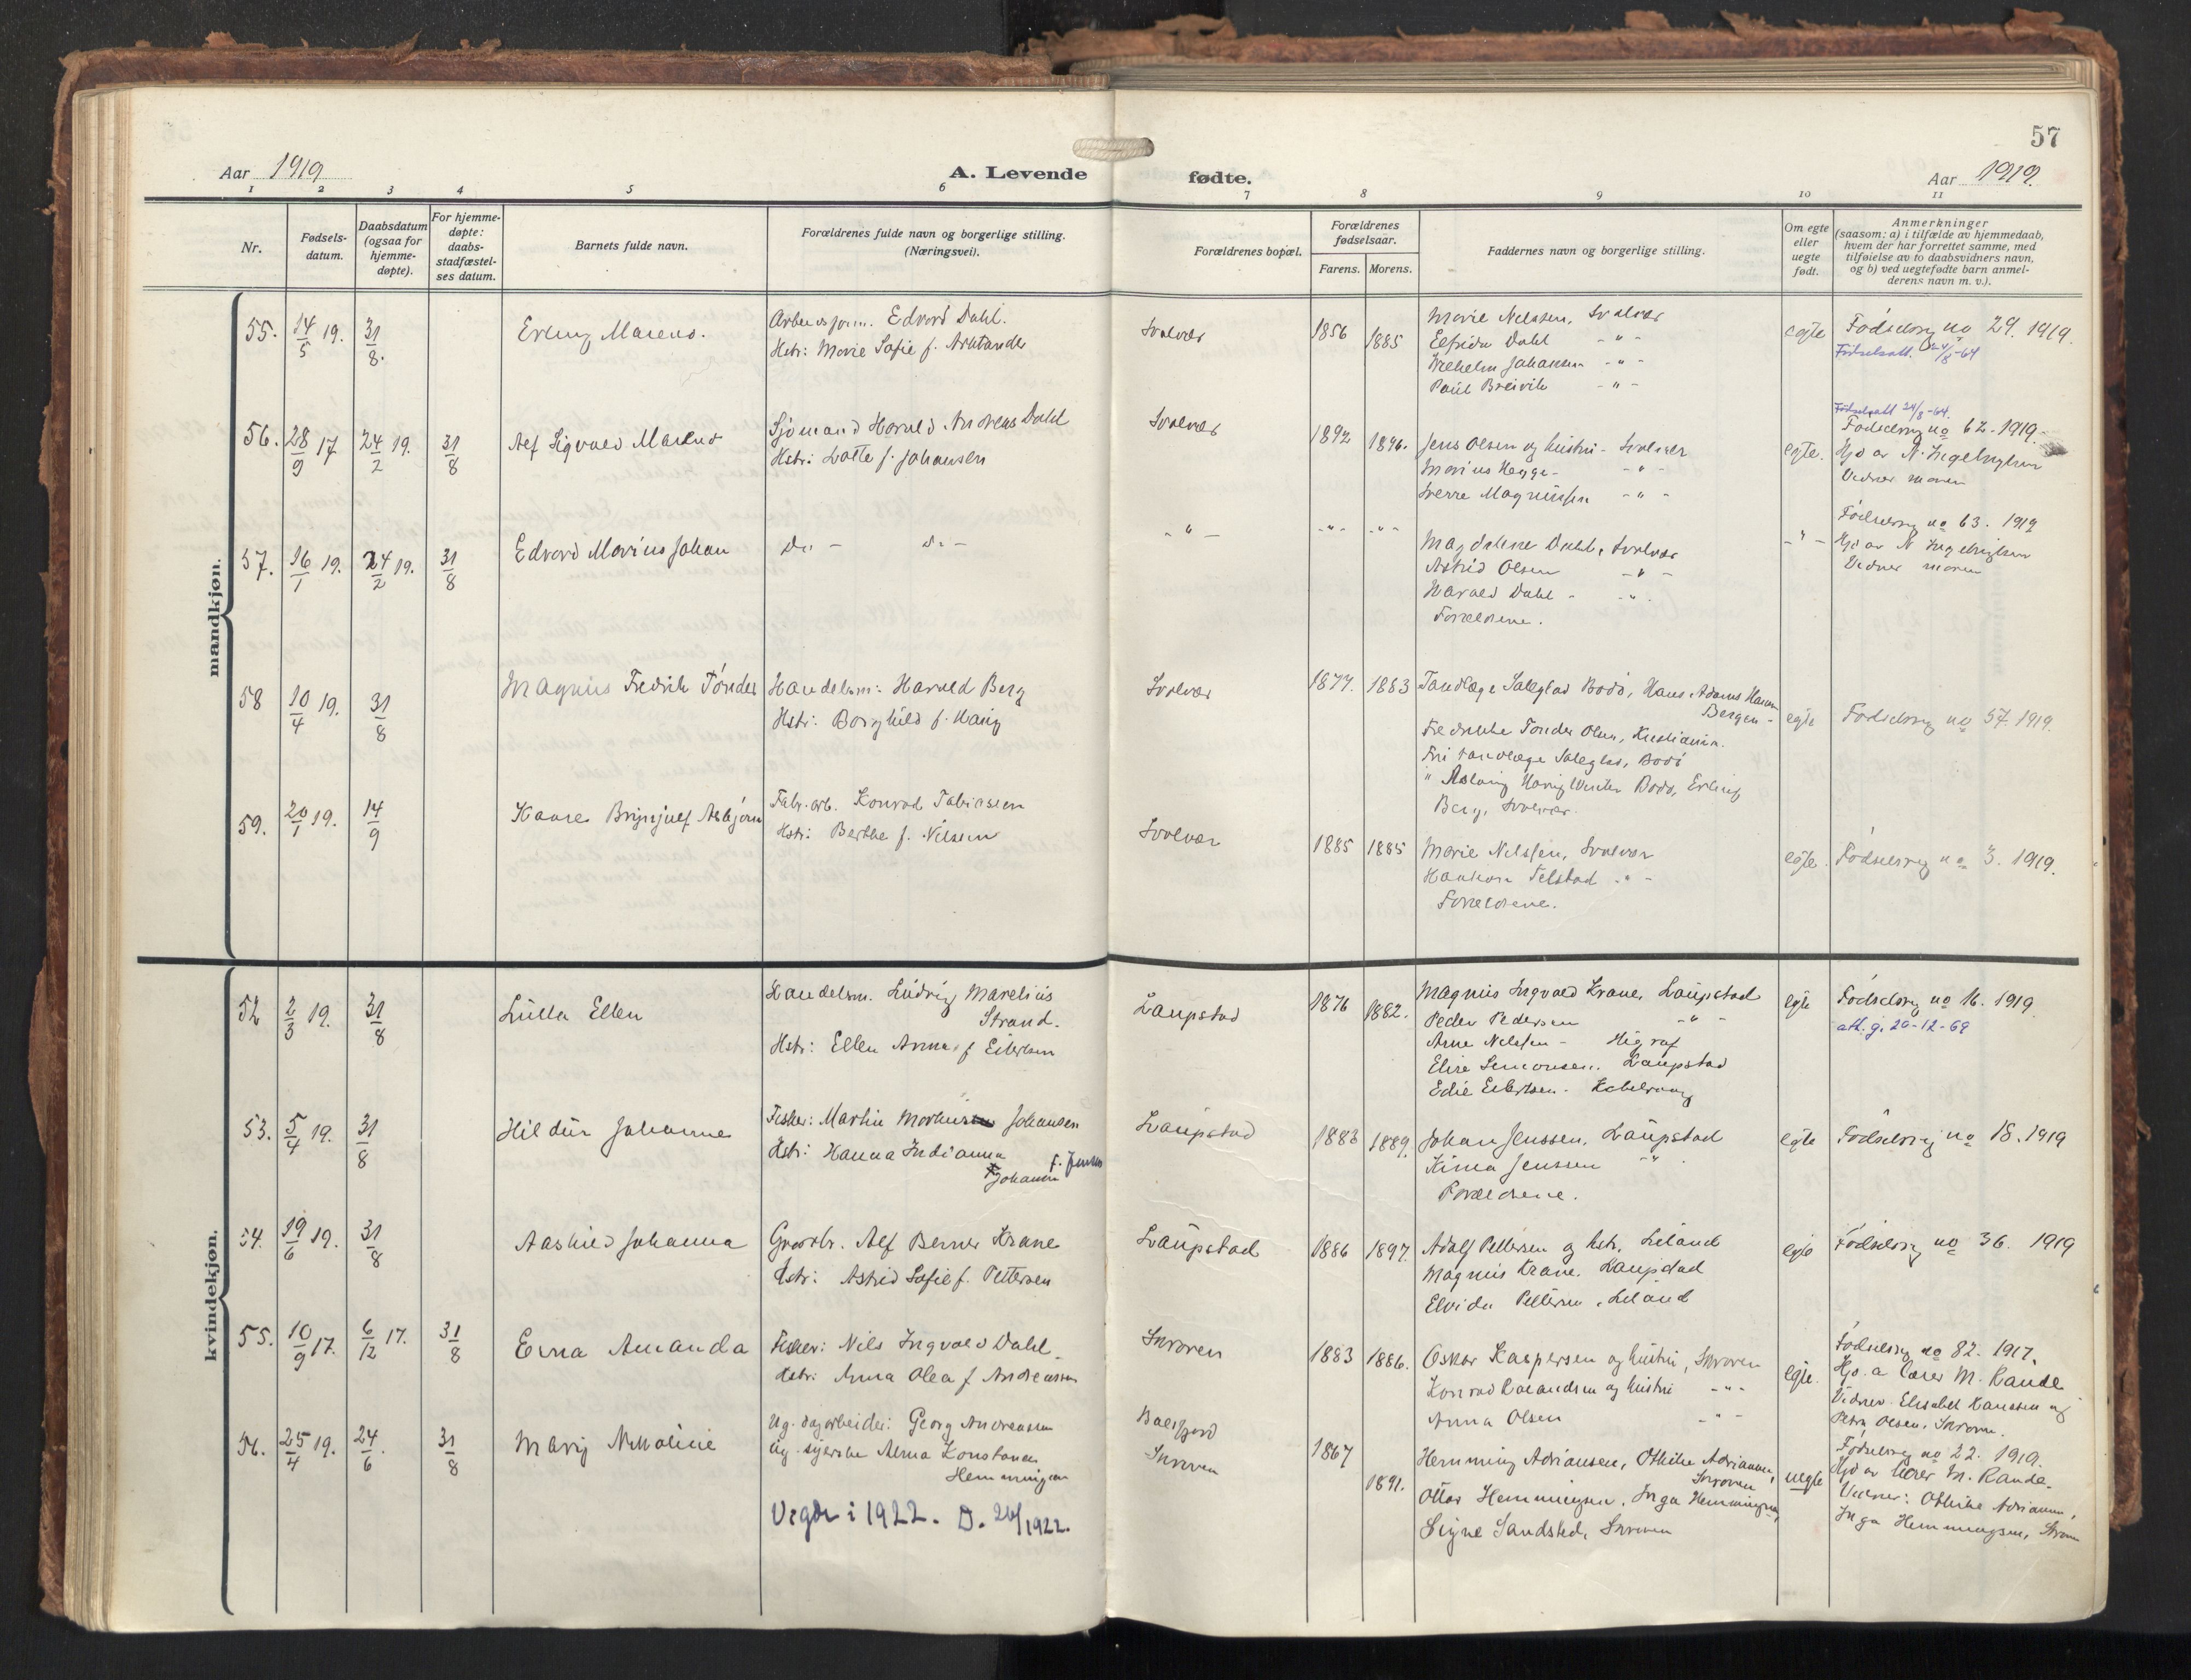 57
Aar 1919
A. Levende fødte.
Aar 1919.
1 2 3 4 5 6 7 8 9 10 11
Nr.
Fødsels-
datum.
Daabsdatum
(ogsaa for
hjemme-
døpte).
For hjemme-
døpte:
daabs-
stadfæstel-
ses datum.
Barnets fulde navn.
Forældrenes fulde navn og borgerlige stilling.
(Næringsvei).
Forældrenes bopæl.
Forældrenes
fødselsaar.
Farens. Morens.
Faddernes navn og borgerlige stilling.
Om egte
eller
uegte
født.
Anmerkninger
(saasom: a) i tilfælde av hjemmedaab,
hvem der har forrettet samme, med
tilføielse av to daabsvidners navn,
og b) ved uegtefødte barn anmel-
derens navn m. v.).
mandkjøn.
55. 14/5 19. 31/8.
Erling Marenus.
Edvard Dahl.
Hstr: Marie Sofie f.
Svolvær
1856 1885
Marie Nelssen, Svolvær
Elfrida Dahl - " -
Wilhelm Johansen - " -
Paul Breivik - " -
egte
Fødselsreg no 29. 1919.
Fødselsatt. 24/8-64
56. 28/9 17 24/2 19. 31/8
Alf Sigvald
Sjømand Harald Andreas Dahl
Hstr: Lotte f. Johansen
Svolvær
1892 1896.
Jens Olsen og hustru - Svolvær
Marius Hegge - - " -
Sverre Magnussen - " -
egte.
Fødselsatt 24/8-64.
Fødselsreg no 62. 1919.
Hjd av N. Ingebrigtsen
Vidner moren
57. 16/1 19. 24/2 19. 31/8
Edvard Marius Johan
Do - Do -
- " -
- " - - " -
Magdalene Dahl, Svolvær
Astrid Olsen - " -
Harald Dahl - - " -
Forældrene.
- " -
Fødselsreg no 63. 1919
Hjd av N Ingebrigtsen
Vidner moren
58 10/4 19. 31/8
Magnus Fredrik Tønder
Handelsm: Harald Berg
Hstr: Borghild f. Haug
Svolvær
1877. 1883
Tandlæge Bodø, Hans Adams
Bergen -
Fredrikke Tønder Olsen, Kristiania.
Fru tandlæge Bodø
" Aslaug Bodø, Erling
Berg, Svolvær.
egte
Fødselsreg no 57. 1919.
59. 20/1 19. 14/9
Kaare Brynjulf Asbjørn
Fabr. arb. Konrad Tobiassen
Hstr: Berthe f. Nilsen
Svolvær
1885 1885
Marie Nelssen, Svolvær
Telstad - " -
Forældrene.
egte.
Fødselsreg no 3. 1919.
kvindekjøn.
52 2/3 19. 31/8
Lulla Ellen
Handelsm. Ludvig Marelius
Strand.
Hstr: Ellen Anna f Eilertsen
Laupstad
1876 1882.
Magnus Ingvald Krane, Laupstad
Peder Pedersen - " -
Arne Nelssen - Higrav
Elise Simonsen. Laupstad
Edie Eilertsen - Kabelvaag
egte
Fødselsreg no 16. 1919.
att. g. 20-12-69
53. 5/4 19. 31/8
Hildur Johanne
Fisker: Martin Johansen
Hstr: Hanna Indianna
f. Jensen
Laupstad
1883 1889.
Johan Jenssen, Laupstad
Jenssen - " -
Forældrene.
egte
Fødselsreg no 18. 1919
54. 19/6 19. 31/8
Aashild Johanna
Gaardbr. Alf Berner Krane
Hstr: Astrid Sofie f. Pettersen
Laupstad
1886 1897.
Adolf Pettersen og hstr. Liland
Magnus Krane. Laupstad
Elvida Pettersen, Liland
egte
Fødselsreg no 36. 1919
55. 10/9 17. 6/12 17. 31/8
Erna Amanda
Fisker: Nils Ingvald Dahl.
Hstr: Anna Olea f Andreassen
Skroven
1883 1886.
Oskar Kaspersen og hustru, Skroven
Konrad Rolandsen og hustru - " -
Anna Olsen - " -
egte.
Fødselsreg no 82. 1917.
Hjd. a lærer M. Rande
Vidner. Elisabet Hanssen og
Petra Olsen, Skroven.
56. 25/4 19. 24/6 31/8
Mary Nikoline
Ug. dagarbeider: Georg Andreassen
Ug. syerske Alma Konstanse
Hemmingsen
Balsfjord
Skroven
1867
1891.
Hemming Adriansen, Othilie Adriansen,
Skroven
Ottar Hemmingsen, Inga Hemmingsen,
Signe Sandsted, Skroven
uegte
Fødselsreg no 22. 1919.
Hjd av lærer M. Rande.
Vidner: Othilie Adriansen,
Inga Hemmingsen, Skroven
i 1922. D. 1922.